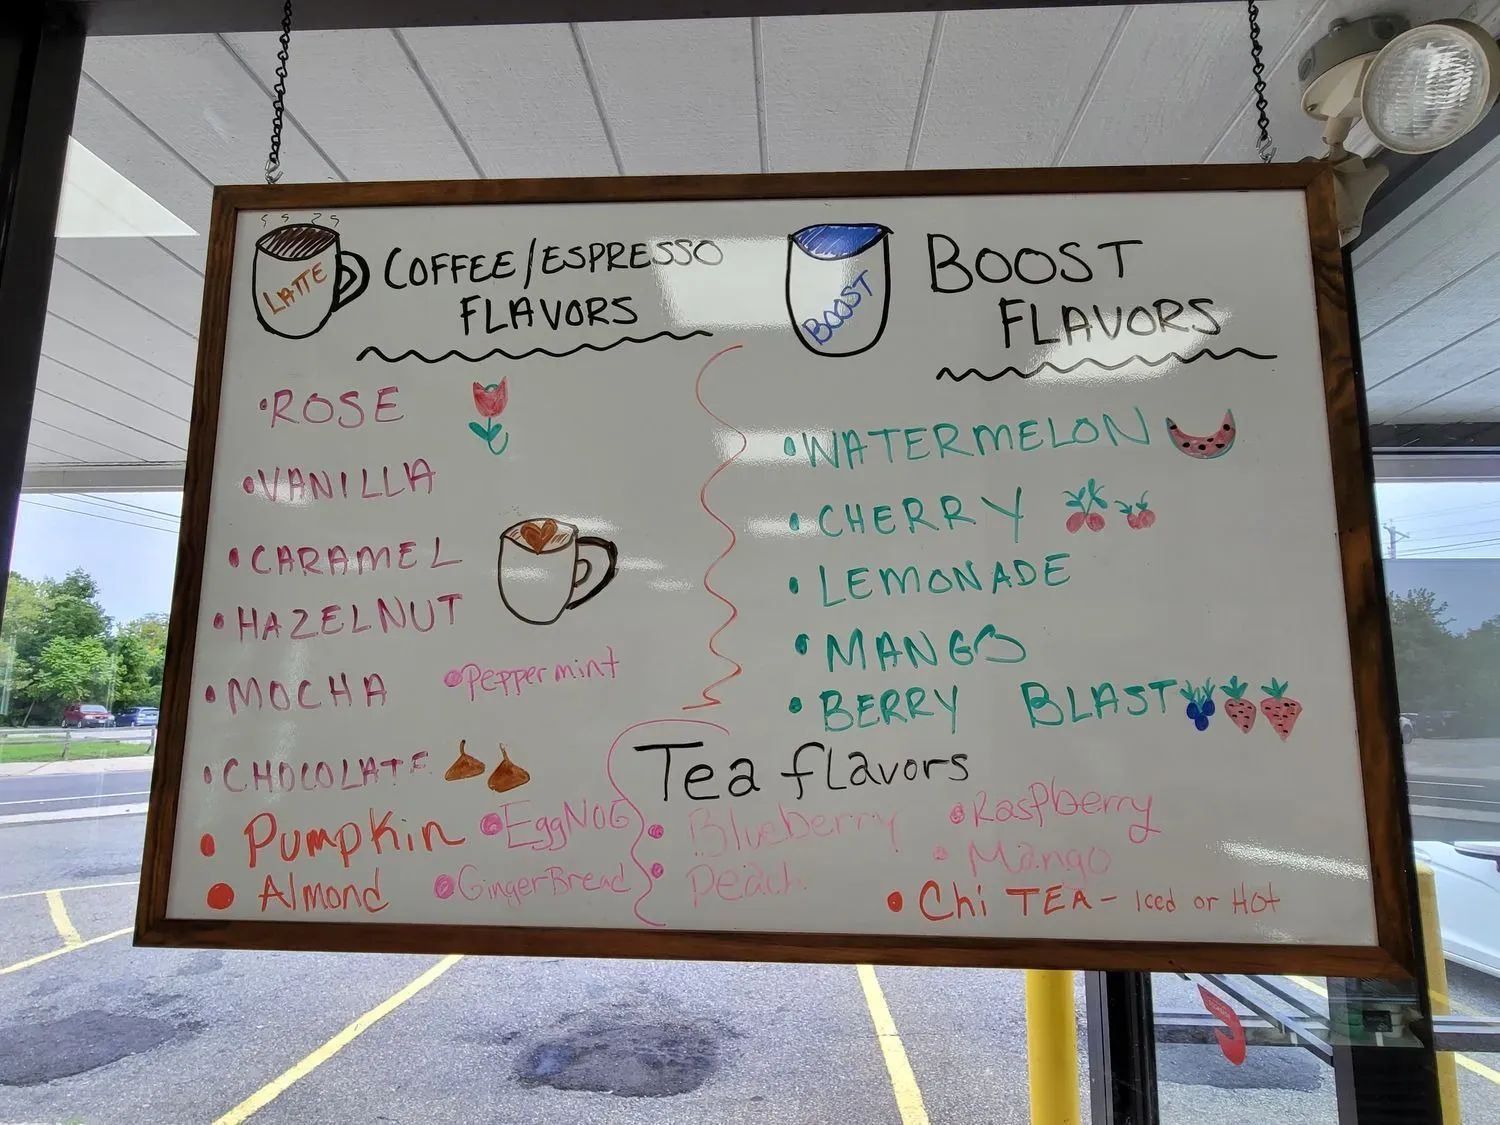 LATTE
COFFEE/ESPRESSO
FLAVORS
• ROSE
• VANILLA
• CARAMEL
• HAZELNUT
• MOCHA
• Peppermint
• CHOCOLATE
• Pumpkin
• EggNOG
• Almond
• GingerBread
BOOST
BOOST
FLAVORS
• WATERMELON
• CHERRY
• LEMONADE
• MANGO
• BERRY BLAST
Tea flavors
• Blueberry
• Raspberry
• Peach
• Mango
• Chi TEA - Iced or Hot